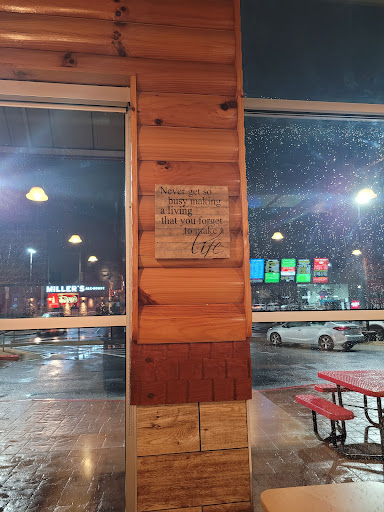 Never get so
busy making
a living
that you forget
to make a
life
MILLER'S ALE HOUSE